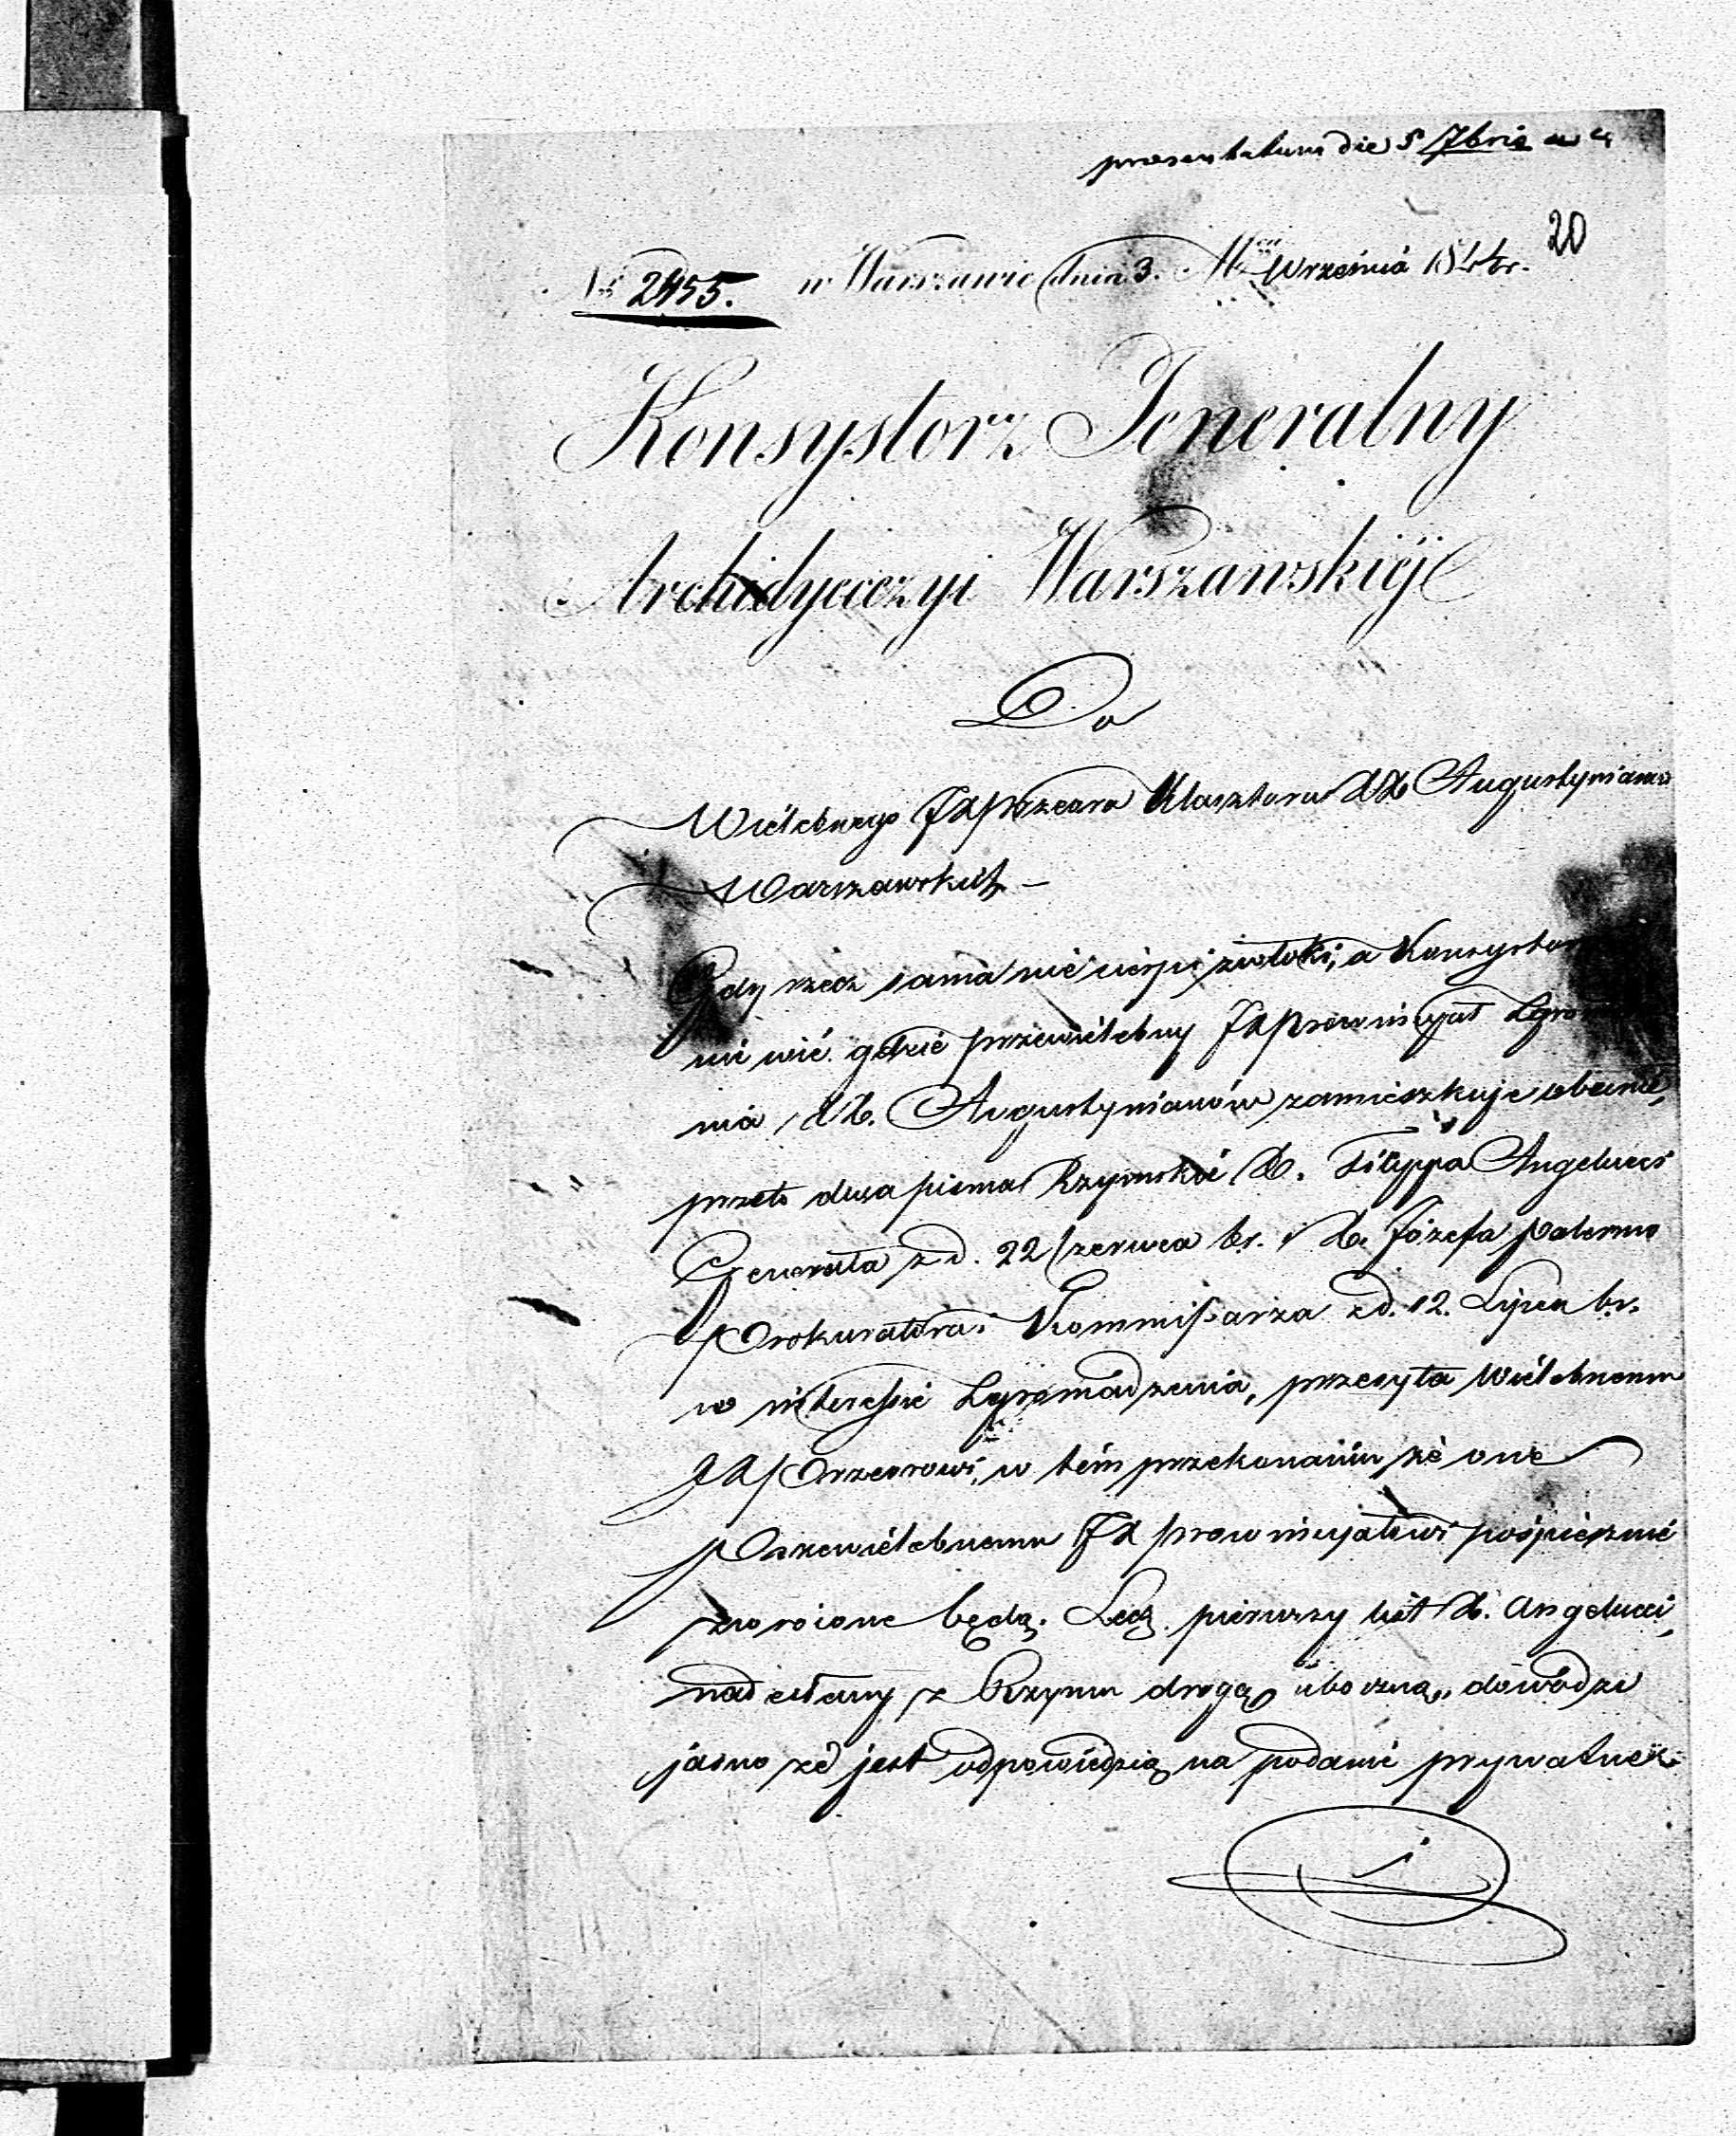 praesentatum die 5 7bris a c
20
№ 2455. w Warszawie dnia 3. Mca Września 1844 r.
Konsystorz Jeneralny
Archidyecezyi Warszawskiéj
Do
Wielebnego JX Przeora Klasztoru XX Augustyianów
Warszawskich –
Gdy rzecz sama nie cierpi zwłoki, a Konsystorz
nie wié gdzie przewielebny JX Prowincyał Zgromadze
nia XX. Augustyianów zamieszkuje obecnie,
przeto dwa pisma Rzymskie X. Filippa Angelucci
Generała z d. 22 Czerwca b.r. i X. Józefa Palermo
Prokuratora i Kommissarza z d. 12. Lipca b.r.
w interessie Zgromadzenia, przesyła Wielebnemu
JX Przeorowi, w tém przekonaniu że one
Przewielebnemu JX Prowincyałowi pośpiesznie
zwrócone będą. Lecz pierwszy list X. Angelucci,
nadesłany z Rzymu drogą uboczną, dowodzi
jasno że jest odpowiedzią na podanie prywatne